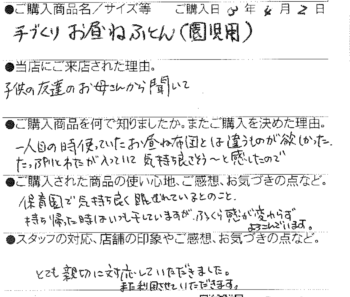 ●ご購入商品名／サイズ等　ご購入日 3 年 4 月 2 日
手づくり お昼ねふとん（園児用）
●当店にご来店された理由。
子供の友達のお母さんから聞いて
●ご購入商品を何で知りましたか。またご購入を決めた理由。
一人目の時使っていたお昼ね布団とは違うものが欲しかった。
たっぷりとわたが入っていて気持ち良さそう〜と感じたので
●ご購入された商品の使い心地、ご感想、お気づきの点など。
保育園で気持ち良く眠れているとのこと。
持ち帰った時はいつも干していますが、ふっくら感が変わらず
よろこんでいます。
●スタッフの対応、店舗の印象やご感想、お気づきの点など。
とても親切に対応していただきました。
また利用させていただきます。